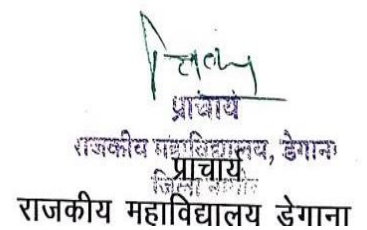 प्राचार्य
राजकीय महाविद्यालय, डेगाना
प्राचार्य
जिला नागौर
राजकीय महाविद्यालय डेगाना